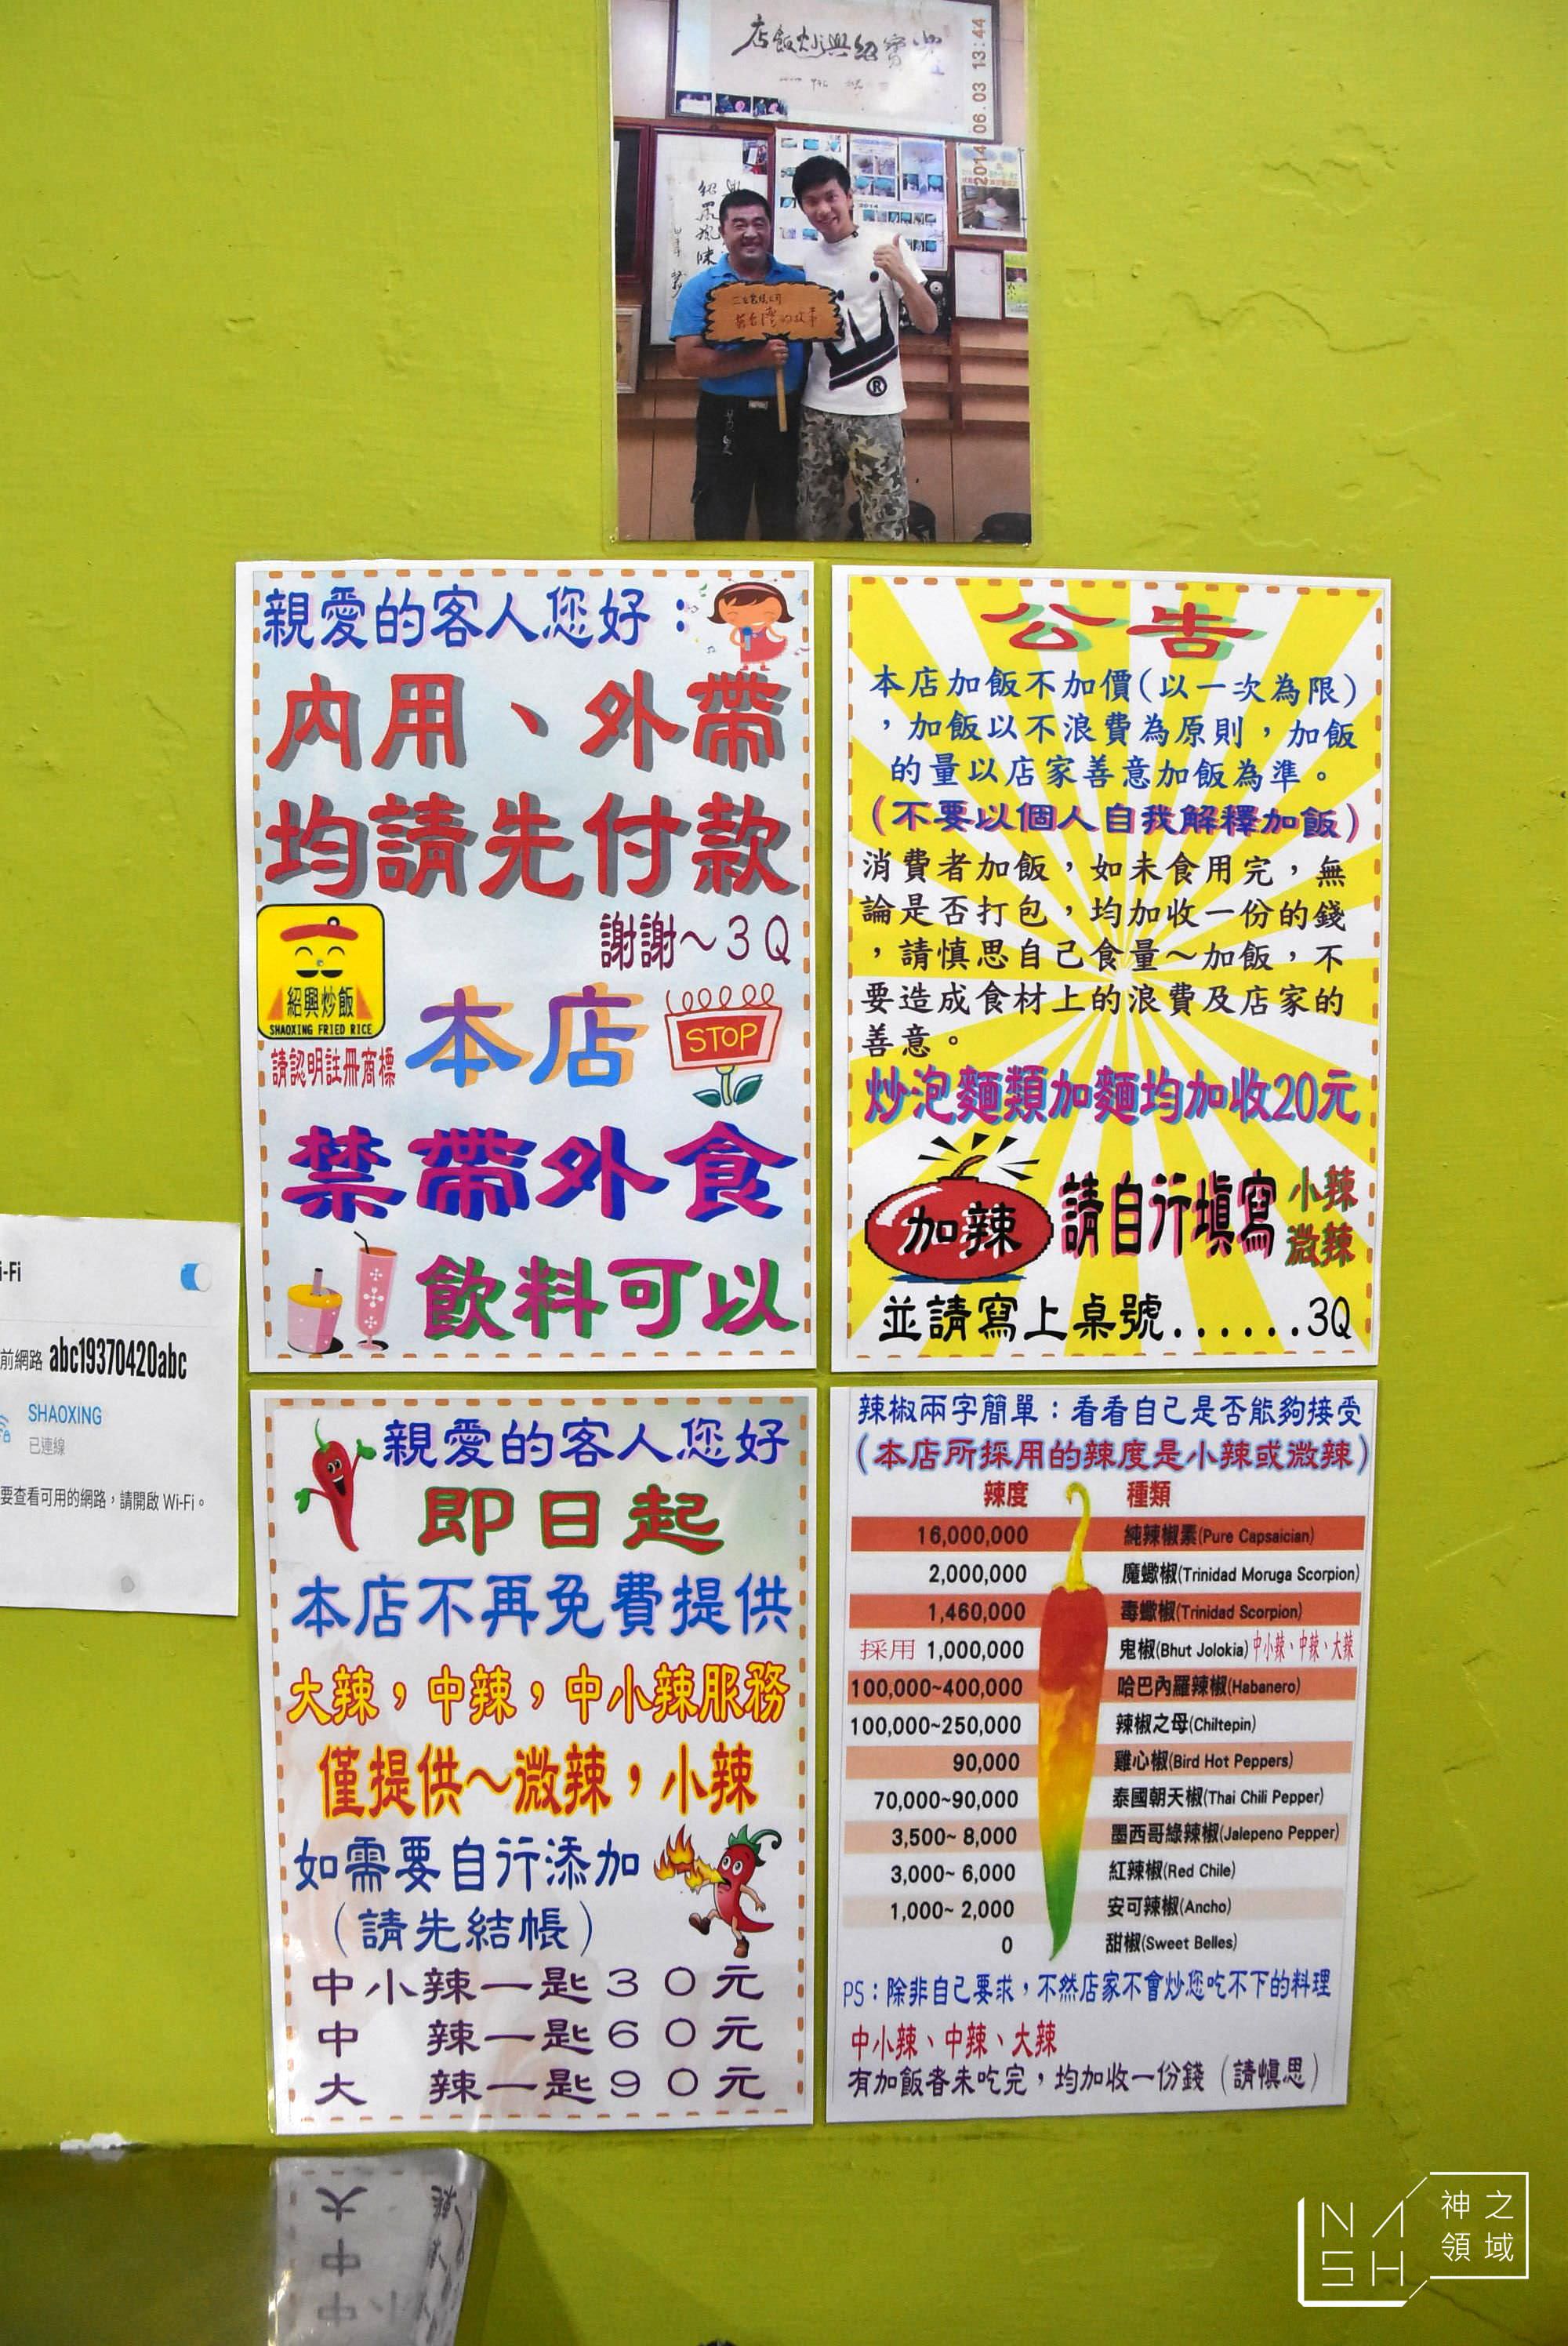 2014 06.03 13:44
店飯炒興紹寶
®
親愛的客人您好：
內用、外帶
均請先付款
謝謝～3Q
紹興炒飯
SHAOXING FRIED RICE
請認明註冊商標
本店
STOP
禁帶外食
飲料可以
公告
本店加飯不加價(以一次為限)
，加飯以不浪費為原則，加飯
的量以店家善意加飯為準。
(不要以個人自我解釋加飯)
消費者加飯，如未食用完，無
論是否打包，均加收一份的錢
，請慎思自己食量～加飯，不
要造成食材上的浪費及店家的
善意。
炒泡麵類加麵均加收20元
加辣 請自行填寫 小辣
微辣
並請寫上桌號......3Q
i-Fi
前網路 abc19370420abc
SHAOXING
已連線
要查看可用的網路，請開啟 Wi-Fi。
親愛的客人您好
即日起
本店不再免費提供
大辣，中辣，中小辣服務
僅提供～微辣，小辣
如需要自行添加
（請先結帳）
中小辣一匙30元
中 辣一匙60元
大 辣一匙90元
辣椒兩字簡單：看看自己是否能夠接受
(本店所採用的辣度是小辣或微辣)
辣度 種類
16,000,000 純辣椒素(Pure Capsaician)
2,000,000 魔蠍椒(Trinidad Moruga Scorpion)
1,460,000 毒蠍椒(Trinidad Scorpion)
採用 1,000,000 鬼椒(Bhut Jolokia) 中小辣、中辣、大辣
100,000~400,000 哈巴內羅辣椒(Habanero)
100,000~250,000 辣椒之母(Chiltepin)
90,000 雞心椒(Bird Hot Peppers)
70,000~90,000 泰國朝天椒(Thai Chili Pepper)
3,500~ 8,000 墨西哥綠辣椒(Jalepeno Pepper)
3,000~ 6,000 紅辣椒(Red Chile)
1,000~ 2,000 安可辣椒(Ancho)
0 甜椒(Sweet Belles)
PS：除非自己要求，不然店家不會炒您吃不下的料理
中小辣、中辣、大辣
有加飯者未吃完，均加收一份錢（請慎思）
NASH
神之
領域